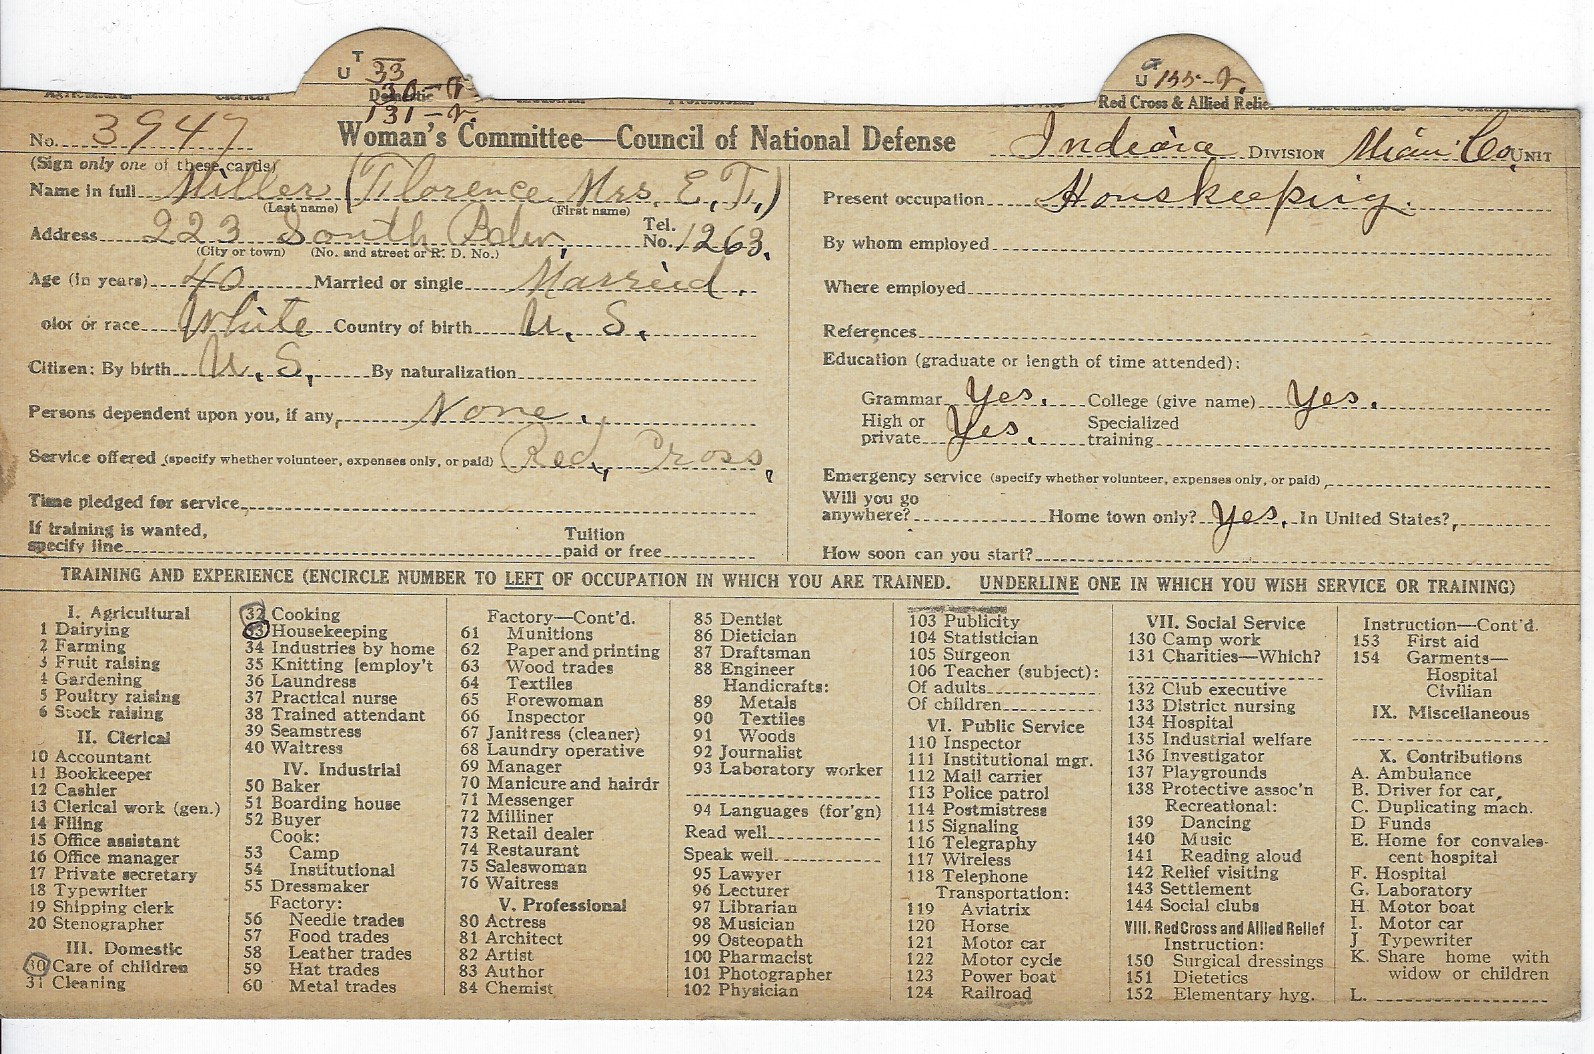 T
U 33
30-T
Domestic
131-V.
U 155-V.
Red Cross & Allied Relie
No. 3947
Woman's Committee—Council of National Defense
Indiana DIVISION Miami Co. UNIT
(Sign only one of these cards)
Name in full Miller (Florence Mrs. E. T.)
(Last name) (First name)
Address 223 South Tel. No. 1263.
(City or town) (No. and street or R. D. No.)
Age (in years) 40 Married or single Married.
olor or race White Country of birth U. S.
Citizen: By birth U. S. By naturalization
Persons dependent upon you, if any, None.
Service offered (specify whether volunteer, expenses only, or paid) Red Cross,
Time pledged for service,
If training is wanted,
specify line
Tuition
paid or free
Present occupation Houskeeping.
By whom employed
Where employed
References
Education (graduate or length of time attended):
Grammar Yes. College (give name) Yes.
High or
private Yes.
Specialized
training
Emergency service (specify whether volunteer, expenses only, or paid)
Will you go
anywhere? Home town only? Yes. In United States?
How soon can you start?
TRAINING AND EXPERIENCE (ENCIRCLE NUMBER TO LEFT OF OCCUPATION IN WHICH YOU ARE TRAINED. UNDERLINE ONE IN WHICH YOU WISH SERVICE OR TRAINING)
I. Agricultural
1 Dairying
2 Farming
3 Fruit raising
4 Gardening
5 Poultry raising
6 Stock raising
II. Clerical
10 Accountant
11 Bookkeeper
12 Cashier
13 Clerical work (gen.)
14 Filing
15 Office assistant
16 Office manager
17 Private secretary
18 Typewriter
19 Shipping clerk
20 Stenographer
III. Domestic
30 Care of children
31 Cleaning
32 Cooking
33 Housekeeping
34 Industries by home
35 Knitting [employ't
36 Laundress
37 Practical nurse
38 Trained attendant
39 Seamstress
40 Waitress
IV. Industrial
50 Baker
51 Boarding house
52 Buyer
Cook:
53 Camp
54 Institutional
55 Dressmaker
Factory:
56 Needle trades
57 Food trades
58 Leather trades
59 Hat trades
60 Metal trades
Factory—Cont'd.
61 Munitions
62 Paper and printing
63 Wood trades
64 Textiles
65 Forewoman
66 Inspector
67 Janitress (cleaner)
68 Laundry operative
69 Manager
70 Manicure and hairdr
71 Messenger
72 Milliner
73 Retail dealer
74 Restaurant
75 Saleswoman
76 Waitress
V. Professional
80 Actress
81 Architect
82 Artist
83 Author
84 Chemist
85 Dentist
86 Dietician
87 Draftsman
88 Engineer
Handicrafts:
89 Metals
90 Textiles
91 Woods
92 Journalist
93 Laboratory worker
94 Languages (for'gn)
Read well
Speak well
95 Lawyer
96 Lecturer
97 Librarian
98 Musician
99 Osteopath
100 Pharmacist
101 Photographer
102 Physician
103 Publicity
104 Statistician
105 Surgeon
106 Teacher (subject):
Of adults
Of children
VI. Public Service
110 Inspector
111 Institutional mgr.
112 Mail carrier
113 Police patrol
114 Postmistress
115 Signaling
116 Telegraphy
117 Wireless
118 Telephone
Transportation:
119 Aviatrix
120 Horse
121 Motor car
122 Motor cycle
123 Power boat
124 Railroad
VII. Social Service
130 Camp work
131 Charities—Which?
132 Club executive
133 District nursing
134 Hospital
135 Industrial welfare
136 Investigator
137 Playgrounds
138 Protective assoc'n
Recreational:
139 Dancing
140 Music
141 Reading aloud
142 Relief visiting
143 Settlement
144 Social clubs
VIII. Red Cross and Allied Relief
Instruction:
150 Surgical dressings
151 Dietetics
152 Elementary hyg.
Instruction—Cont'd.
153 First aid
154 Garments—
Hospital
Civilian
IX. Miscellaneous
X. Contributions
A. Ambulance
B. Driver for car,
C. Duplicating mach.
D Funds
E. Home for convales-
cent hospital
F. Hospital
G. Laboratory
H. Motor boat
I. Motor car
J Typewriter
K. Share home with
widow or children
L.